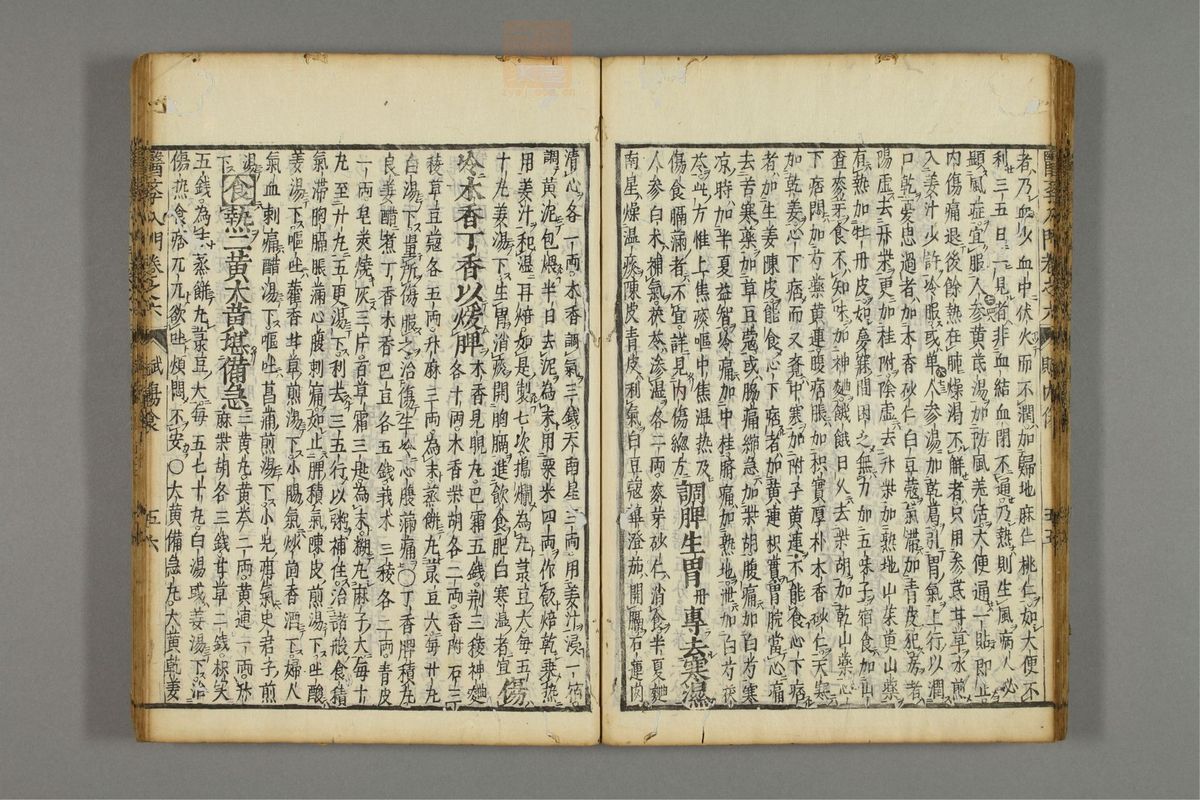 者乃血少血中伏火而不潤加歸地麻仁桃仁如大便不
利三五日一見者非血結血閉不通乃熱則生風病人必
顯風症宜服人參黃芪湯加防風羌活大便通一貼即止
內傷痛退後餘熱在肺燥渴不解者只用參芪甘草水煎
入姜汁少許冷服或單人參湯加乾葛引胃氣上行以潤
口乾憂思過者加木香砂仁白豆蔻氣滯加青皮犯房者
陽虛去升柴更加桂附陰虛去升柴加熟地山茱萸山藥
有熱加牡丹皮如夢寐間困乏無力加五味子宿食加山
查麥芽食不知味加神麴餓餓日久去柴胡加乾山藥心
下痞悶加芍藥黃連腹痞脹加枳實厚朴木香砂仁天寒
加乾姜心下痞而又夯中寒加附子黃連不能食心下痞
者加生姜陳皮能食心下痞者加黃連枳實胃脘當心痛
去苦寒藥加草豆蔻或腸痛縮急加柴胡腹痛加白芍寒
涼時加半夏益智冷痛加中桂臍痛加熟地泄加白芍茯
苓此方惟上焦痰嘔中焦溫熱及
傷食膈滿者不宜詳見內傷總方 調脾生胃丹專去寒濕
人參白朮補氣茯苓滲溫各二兩麥芽砂仁消食半夏麴
南星燥溫痰陳皮青皮利氣白豆蔻蓽澄茄開膈石蓮肉
清心各一兩木香調氣三錢天南星三兩用姜汁浸一宿
調黃泥包煨半日去泥為末用粟米四兩作飯焙乾乘熱
用姜汁和溫再焙如是製七次搗爛為丸菉豆大每五
十丸姜湯下生胃消痰開胸膈進飲食肥白人寒溫者宜 傷
冷木香丁香以煖脾 木香見晛丸巴霜五錢荊三稜神麴
各十兩木香柴胡各二兩香附石三
稜草豆蔻各五兩升麻三兩為末蒸餅丸菉豆大每廿丸
白湯下量所傷服之治傷生冷心腹滿痛〇丁香脾積丸
良姜醋煮丁香木香巴豆各五錢莪朮三稜各二兩青皮
一兩皂莢燒灰三片百草霜三匙為末糊丸麻子大每十
九至廿九五更湯下利去三五行以粥補住治諸般食積
氣滯胸膈脹滿心腹刺痛如止脾積氣陳皮煎湯下吐酸
姜湯下嘔吐藿香甘草煎湯下小腸氣炒茴香酒下婦人
氣血刺痛醋湯下嘔吐菖蒲煎湯下小兒疳氣史君子煎
湯下 食熱二黃大黃堪備急 三黃丸黃芩二兩黃連一兩升
麻柴胡各三錢甘草二錢枳实
五錢為生蒸餅丸菉豆大每五七十丸白湯或姜湯下治
傷熱食痞兀兀欲吐煩悶不安〇大黃備急丸大黃乾姜